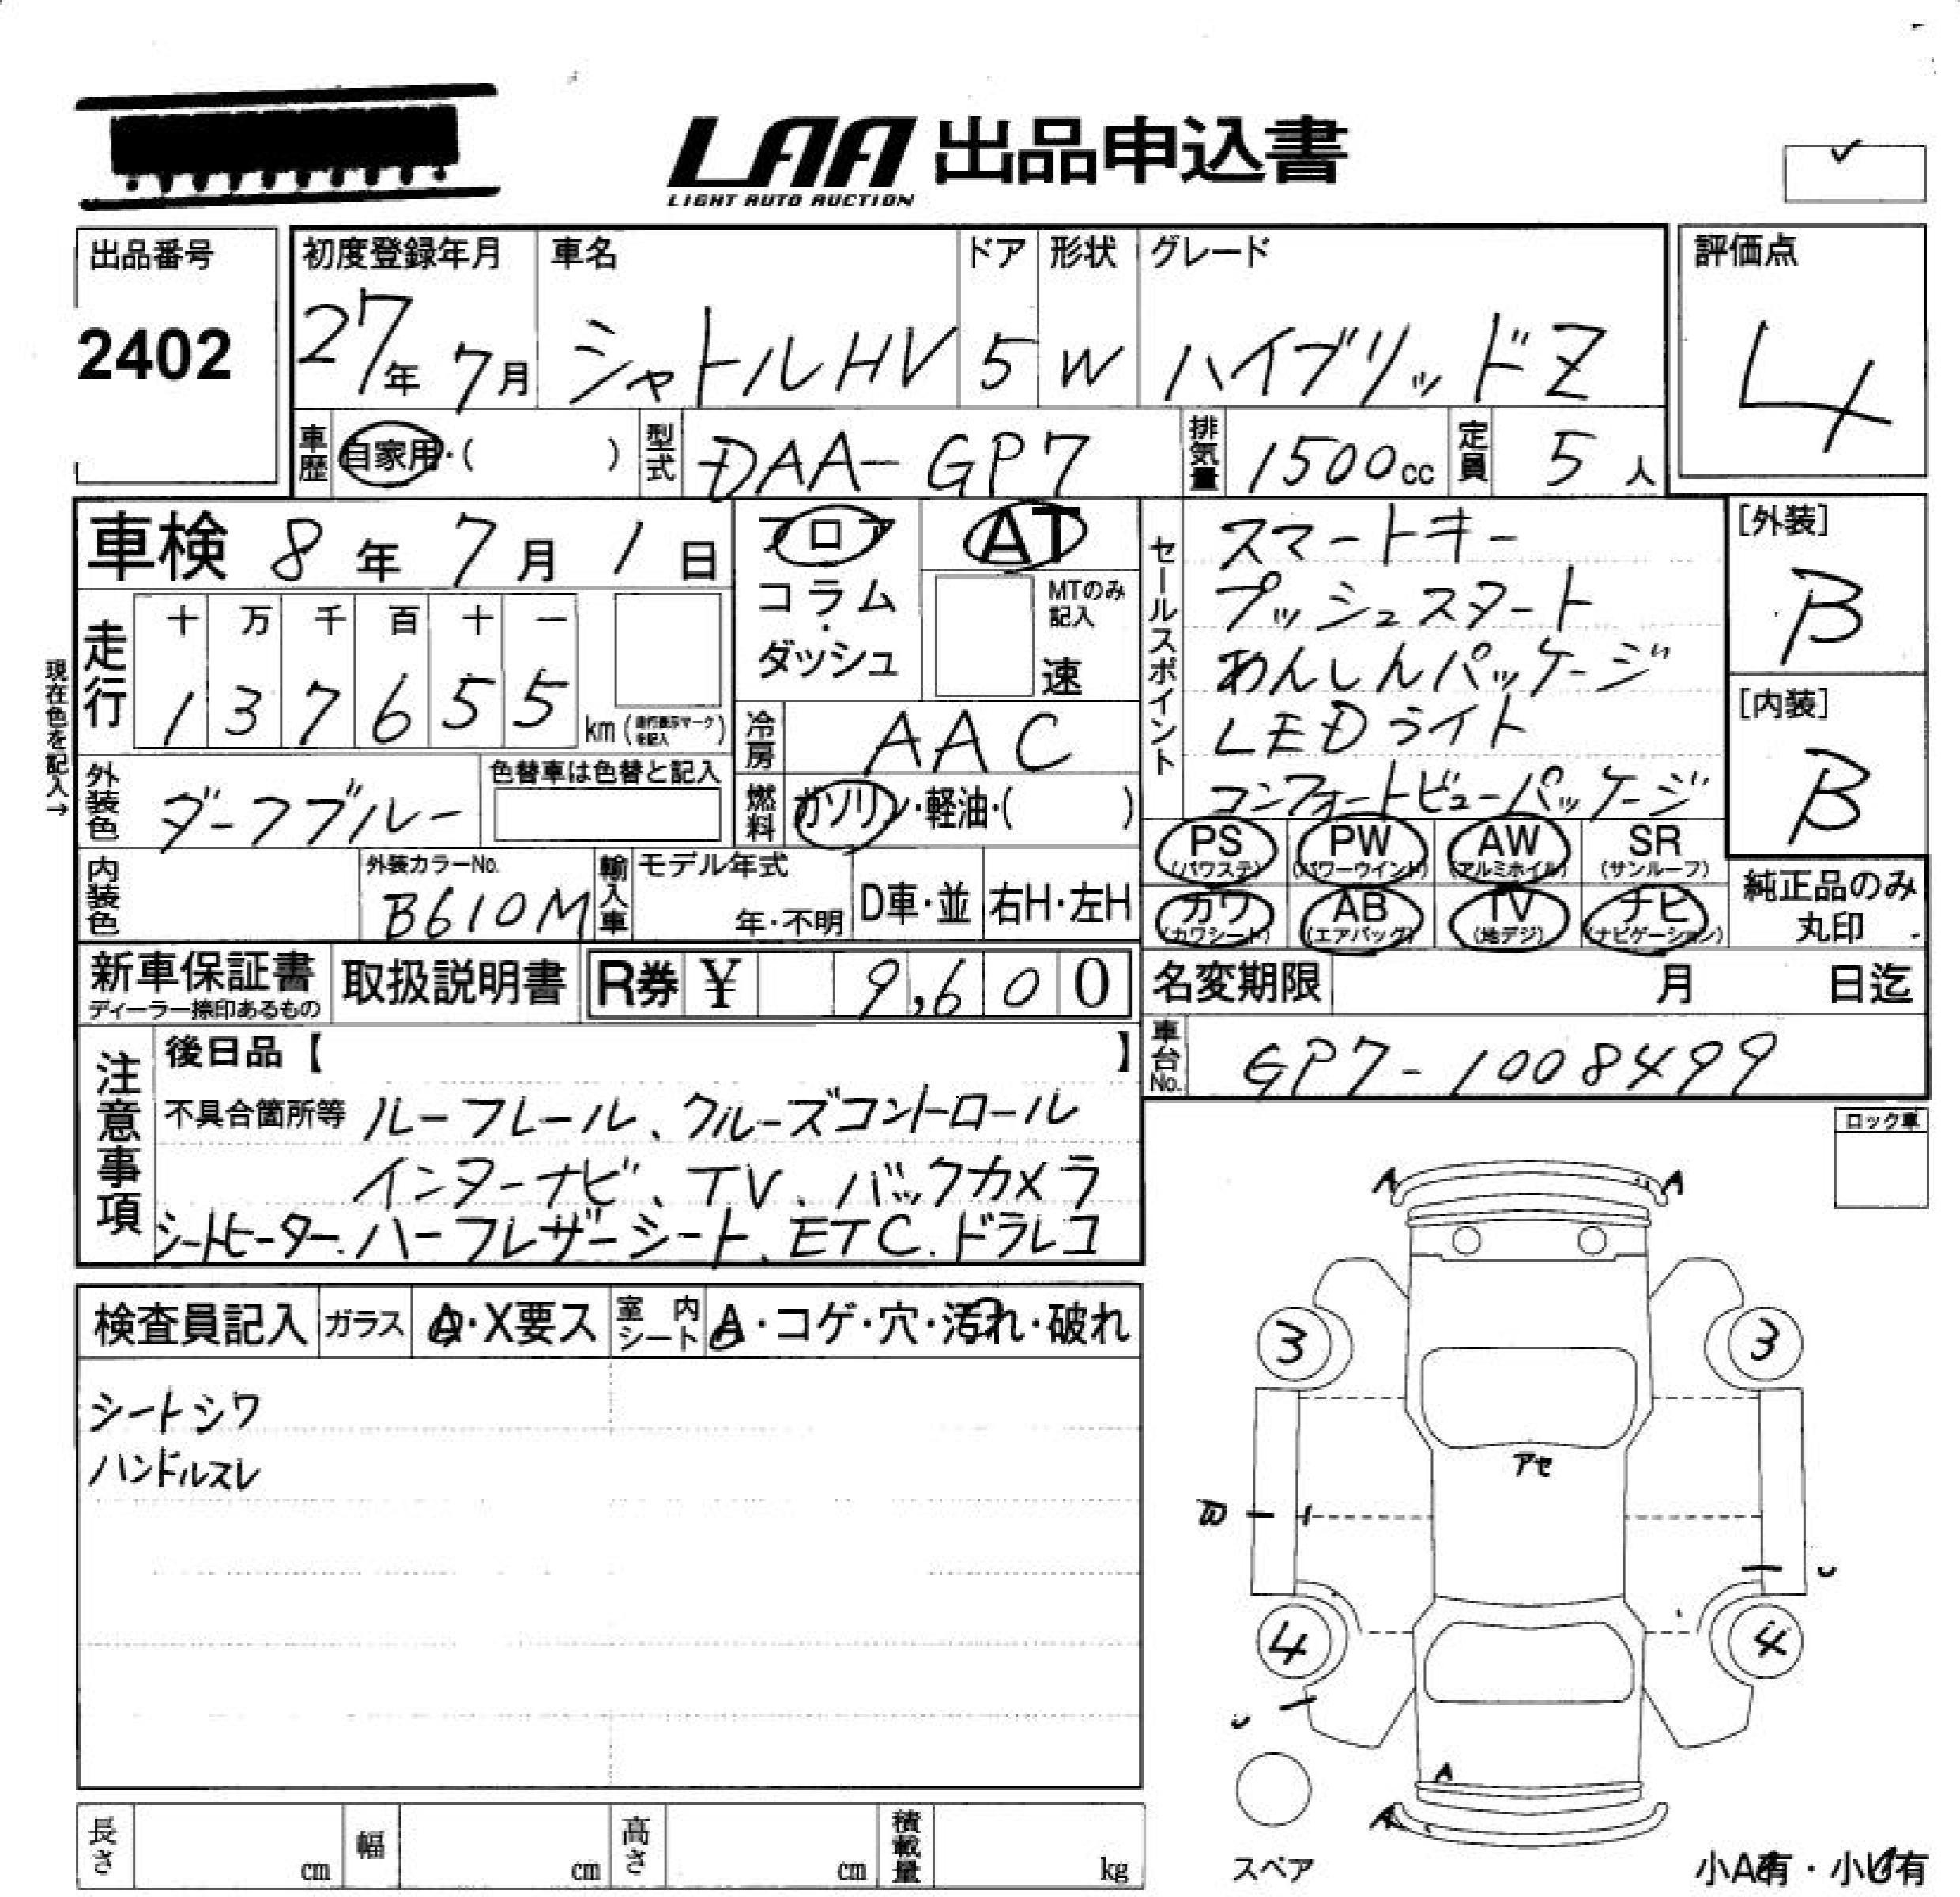 LAA 出品申込書
LIGHT AUTO AUCTION
出品番号
2402
初度登録年月
27年 7月
車名
シャトルHV
ドア
5
形状
W
グレード
ハイブリッドZ
評価点
4
車歴 自家用・( )
型式 DAA-GP7
排気量 1500cc
定員 5人
車検 8年 7月 1日
フロア
コラム
・
ダッシュ
AT
MTのみ記入
速
セールスポイント
スマートキー
プッシュスタート
あんしんパッケージ
LEDライト
コンフォートビューパッケージ
[外装]
B
[内装]
B
現在色を記入→
走行
十 万 千 百 十 一
1 3 7 6 5 5
km (走行表示マークを記入)
冷房 AAC
燃料 ガソリン・軽油・( )
外装色 ダークブルー
色替車は色替と記入
内装色
外装カラーNo.
B610M
輸入車
モデル年式
年・不明
D車・並
右H・左H
PS (パワステ)
PW (パワーウインド)
AW (アルミホイル)
SR (サンルーフ)
カワ (カワシート)
AB (エアバッグ)
TV (地デジ)
ナビ (ナビゲーション)
純正品のみ
丸印
新車保証書
ディーラー捺印あるもの
取扱説明書
R券 ¥ 9,600
名変期限 月 日迄
車台No. GP7-1008499
注意事項
後日品【 】
不具合箇所等 ルーフレール、クルーズコントロール
インターナビ、TV、バックカメラ
シートヒーター、ハーフレザーシート、ETC、ドラレコ
ロック車
検査員記入
ガラス A・X要ス
室内シート A・コゲ・穴・汚れ・破れ
シートシワ
ハンドルスレ
A A
3 3
アセ
4 4
A
A
スペア
長さ cm
幅 cm
高さ cm
積載量 kg
小A有・小U有